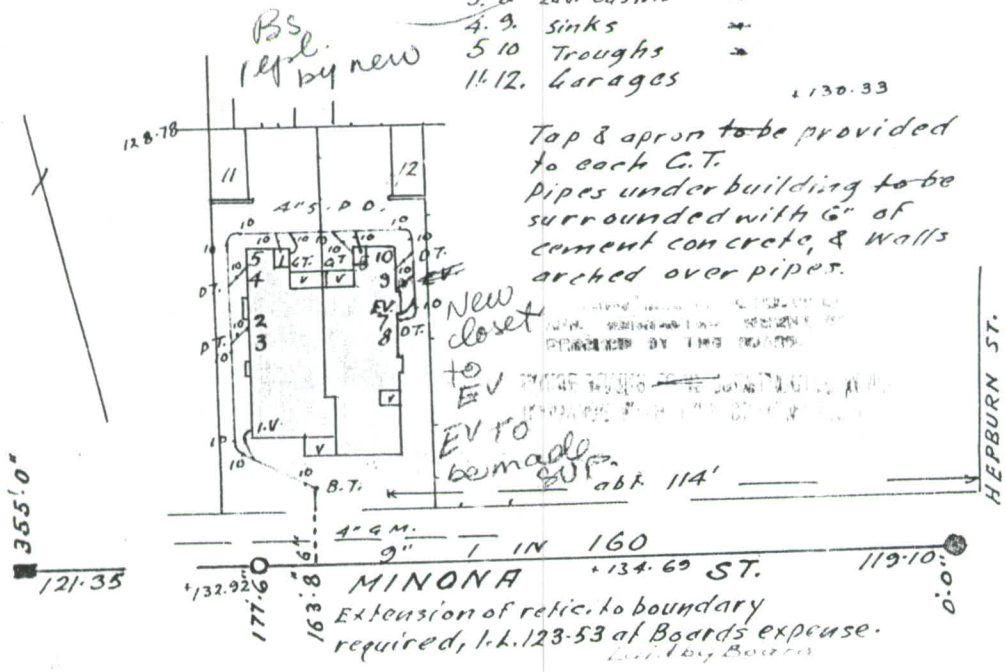 Bs
repl.
by new
4. 9. Sinks
5 10 Troughs
11. 12. Garages
+130.33
128.78
Tap & apron to be provided
to each G.T.
Pipes under building to be
surrounded with 6" of
cement concrete, & walls
arched over pipes.
11
12
4" S.P.D.
10
10
10
10
10
10
10
10
5
1
G.T.
G.T.
6
10
D.T.
10
4
V
V
9
10
E.V.
D.T.
E.V.
10
2
7
D.T.
10
3
8
D.T.
10
New
closet
to
EV
V
EV to
be made
SVP.
I.V
V
10
10
10
B.T.
abt 114'
HEPBURN ST.
355'.0"
4" G.M.
9" 1 IN 160
121.35
+132.92
177.6
163'.8"
6"
MINONA ST.
+134.69
119.10
0'.0"
Extension of retic. to boundary
required, I.L. 123.53 at Boards expense.
by Board